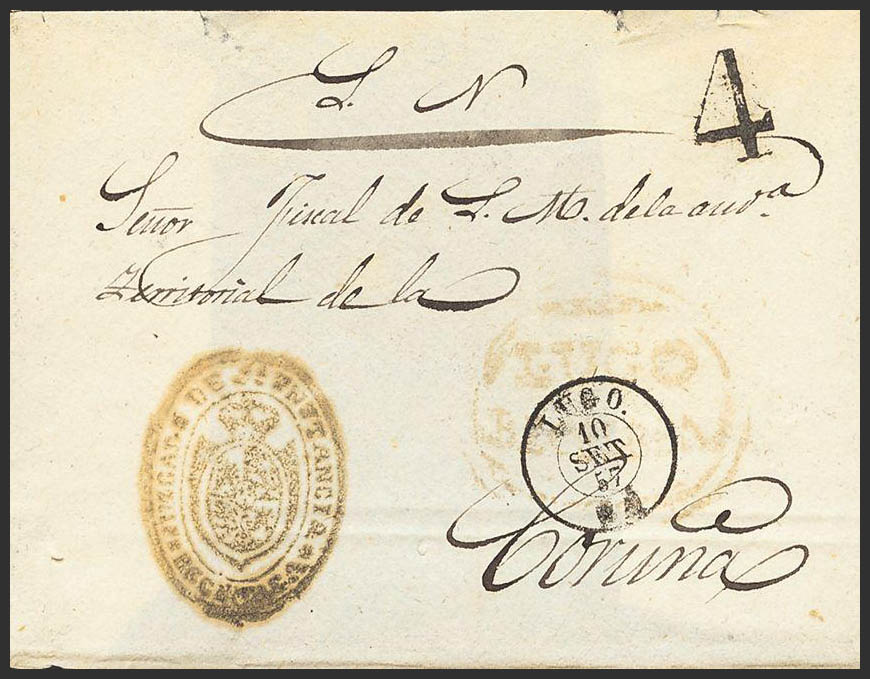 S. N.
4
Señor Fiscal de S. M. de la aud.ª
Territorial de la
JUZGADO DE 1ª INSTANCIA
LUGO.
10
SET
57
Coruña